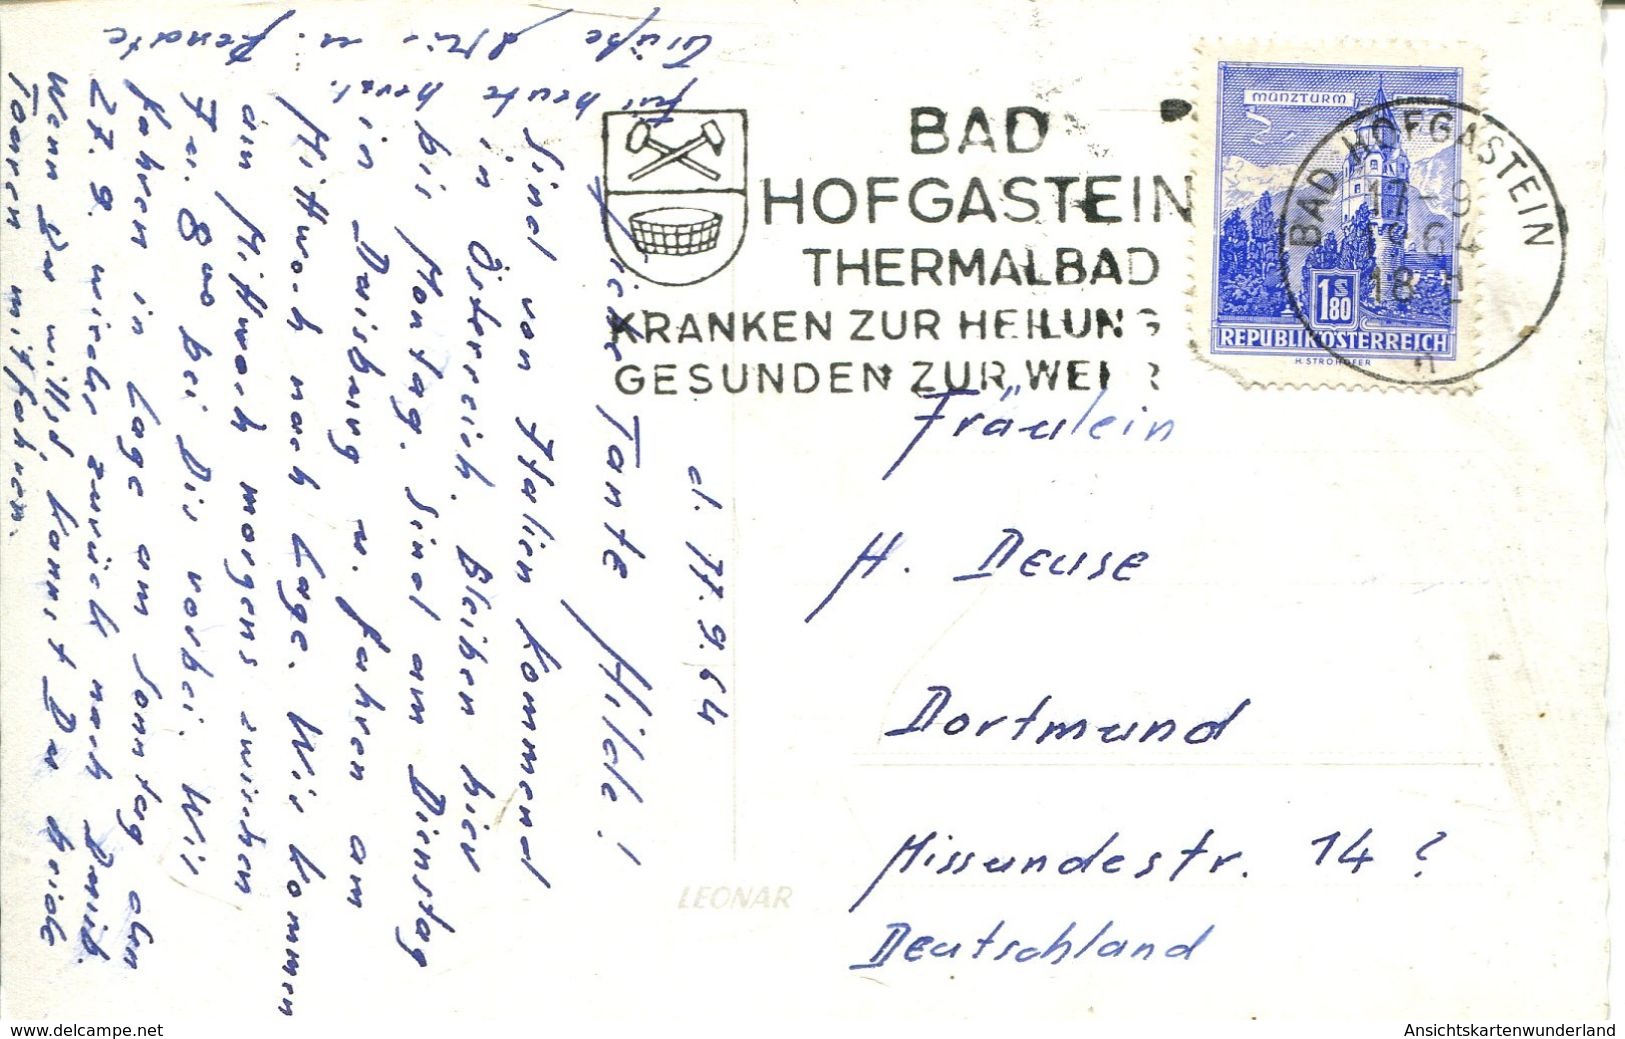 BAD
HOFGASTEIN
THERMALBAD
KRANKEN ZUR HEILUNG
GESUNDEN ZUR WEHR
MÜNZTURM
1 S 80
REPUBLIK ÖSTERREICH
H. STROHOFER
BAD HOFGASTEIN
17-9
1964
18
d. 17.9.64
Liebe Tante Hilde!
Sind von Italien kommend
in Österreich. Bleiben hier
bis Montag. Sind am Dienstag
in Duisburg u. fahren am
Mittwoch nach Lage. Wir kommen
am Mittwoch morgens zwischen
7 u. 8 Uhr bei Dir vorbei. Wir
fahren in Lage am Sonntag den
27.9. wieder zurück nach Duisb.
Wenn Du willst, kannst Du beide
Touren mitfahren.
Für heute herzl.
Grüße u. Renate
Fräulein
H. Deuse
Dortmund
Missundestr. 14 ?
Deutschland
LEONAR
www.delcampe.net
Ansichtskartenwunderland